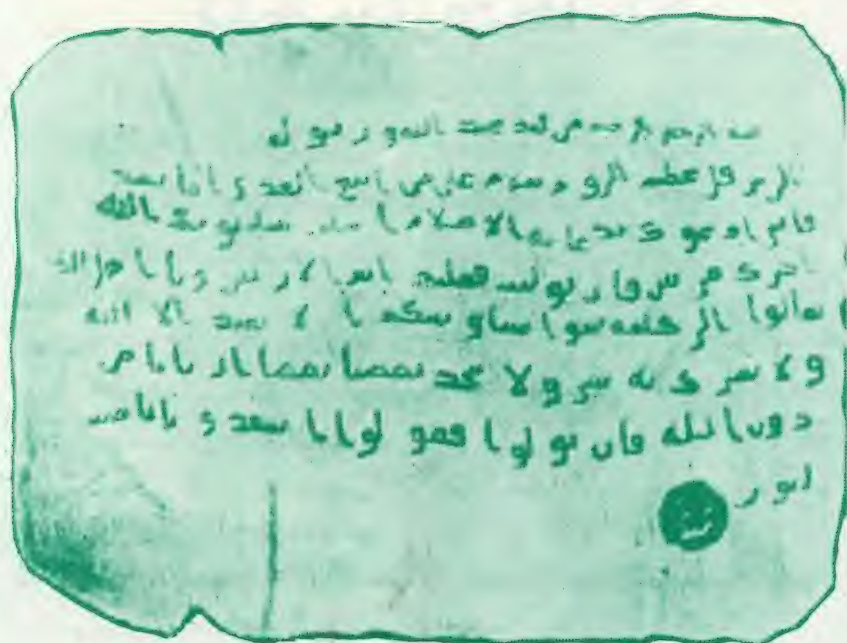 الرحمن الرحيم من محمد عبد الله ورسوله
الى هرقل عظيم الروم سلام على من اتبع الهدى اما بعد
فانى ادعوك بدعاية الاسلام اسلم تسلم يوتك الله
اجرك مرتين فان توليت فعليك اثم
تعالوا الى كلمة سوا بيننا وبينكم الا نعبد الا الله
ولا نشرك به شيا ولا يتخذ بعضنا بعضا اربابا من
دون الله فان تولوا فقولوا اشهدوا بانا